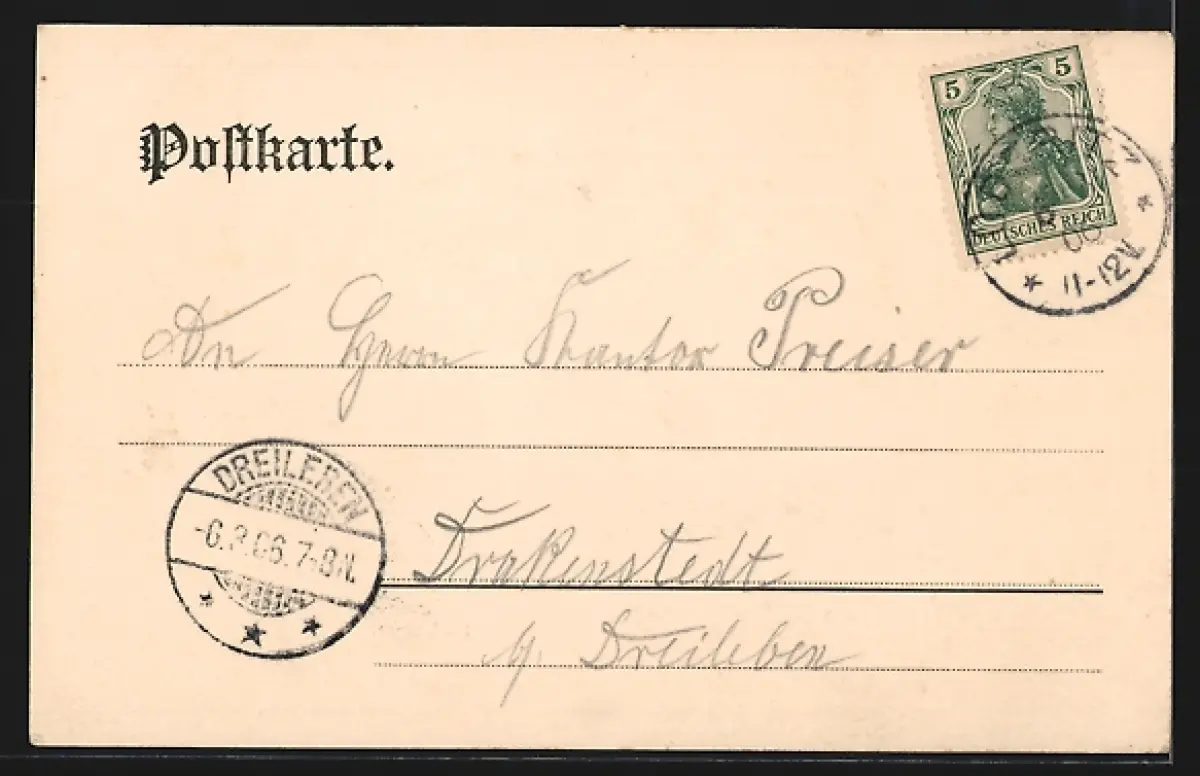 5 5
DEUTSCHES REICH
11-12V.
Postkarte.
An Herrn Kantor Preiser
DREILEBEN
-6.8.06.7-8N.
Drakenstedt
b/ Dreileben